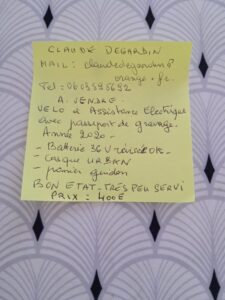 CLAUDE DEGARDIN
MAIL : claudedegardin@
orange.fr
Tel : 0603595692
A VENDRE
VELO à Assistance Electrique
avec passeport de gravage.
Année 2020 -
- Batterie 36V
- Casque URBAN
- panier guidon
BON ETAT - TRES PEU SERVI
PRIX : 400€